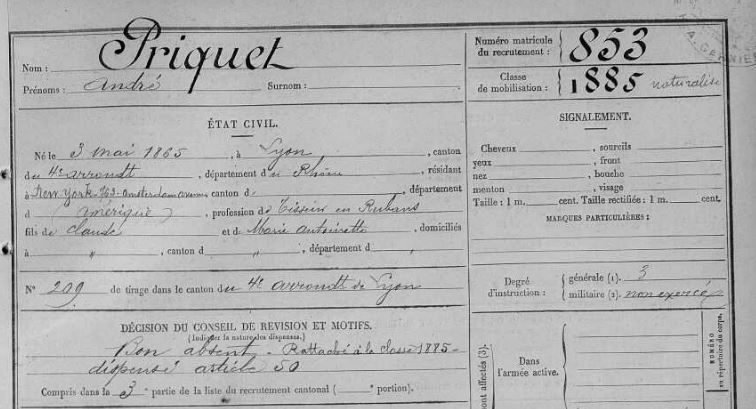 Nom : Priquet
Prénoms : André Surnom :
Numéro matricule
du recrutement : 853
Classe
de mobilisation : 1885 naturalisé
ÉTAT CIVIL.
Né le 3 mai 1865, à Lyon, canton
du 4e arrondt, département du Rhône, résidant
à New York 463 Amsterdam avenue canton d , département
d (Amérique), profession de Tisseur en Rubans
fils de Claude et de Marie Antoinette, domiciliés
à " , canton d " , département d "
N° 209 de tirage dans le canton du 4e arrondt de Lyon
DÉCISION DU CONSEIL DE REVISION ET MOTIFS.
(Indiquer la nature des dispenses.)
Bon absent - Rattaché à la classe 1885 -
dispensé article 50
Compris dans la 3e partie de la liste du recrutement cantonal ( " portion).
SIGNALEMENT.
Cheveux , sourcils
yeux , front
nez , bouche
menton , visage
Taille : 1 m. cent. Taille rectifiée : 1 m. cent.
MARQUES PARTICULIÈRES :
Degré
d'instruction :
générale (1). 3
militaire (2). non exercé
affectés (3).
Dans
l'armée active.
NUMÉRO
au répertoire du corps.